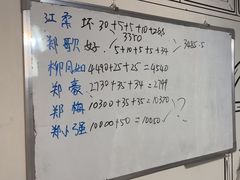 江柔 坏 30+5+5+10+
3350
郑歌 好. 5+10+5+5+34 3485.5
柳同如 4490+25+25=4540
郑豪. 2730+35+34=2799
郑梅 10300+35+35=10370
郑小强 10000+50=10050 ?